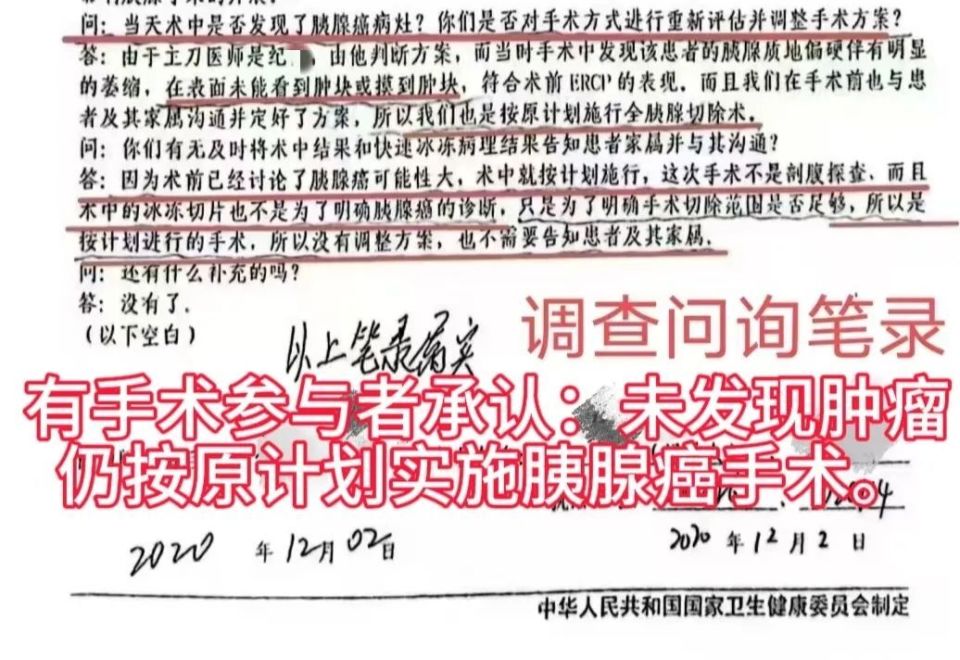 问：当天术中是否发现了胰腺癌病灶？你们是否对手术方式进行重新评估并调整手术方案？
答：由于主刀医师是纪　，由他判断方案，而当时手术中发现该患者的胰腺质地偏硬伴有明显
的萎缩，在表面未能看到肿块或摸到肿块，符合术前 ERCP 的表现。而且我们在手术前也与患
者及其家属沟通并定好了方案，所以我们也是按原计划施行全胰腺切除术。
问：你们有无及时将术中结果和快速冰冻病理结果告知患者家属并与其沟通？
答：因为术前已经讨论了胰腺癌可能性大，术中就按计划施行，这次手术不是剖腹探查、而且
术中的冰冻切片也不是为了明确胰腺癌的诊断，只是为了明确手术切除范围是否足够，所以是
按计划进行的手术，所以没有调整方案，也不需要告知患者及其家属．
问：还有什么补充的吗？
答：没有了．
（以下空白）
调查问询笔录
以上笔录属实
有手术参与者承认：未发现肿瘤
仍按原计划实施胰腺癌手术。
2020 年 12月 02日
2020 年 12 月 2 日
中华人民共和国国家卫生健康委员会制定